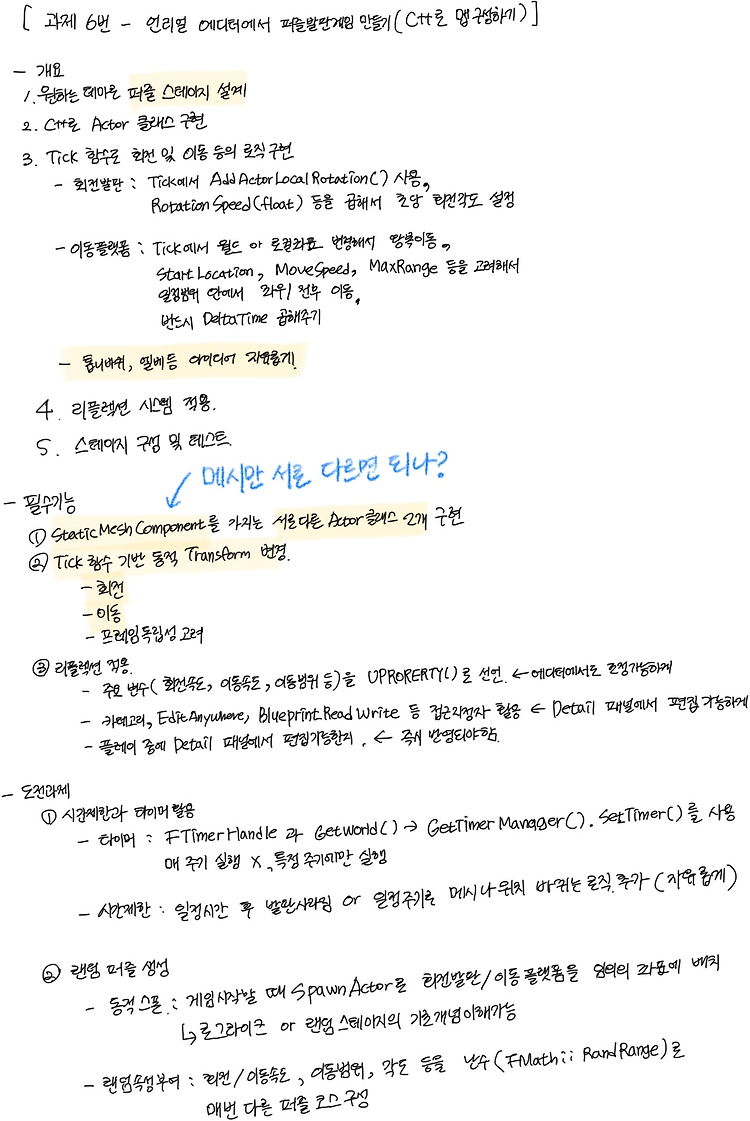 [ 과제 6번 - 언리얼 에디터에서 퍼즐발판게임 만들기 (C++로 맵구성하기) ]
- 개요
1. 원하는 테마로 퍼즐 스테이지 설계
2. C++로 Actor 클래스 구현
3. Tick 함수로 회전 및 이동 등의 로직구현
- 회전발판 : Tick에서 AddActorLocalRotation() 사용,
RotationSpeed(float) 등을 곱해서 초당 회전각도 설정
- 이동플랫폼 : Tick에서 월드 or 로컬좌표 변경해서 왕복이동,
StartLocation, MoveSpeed, MaxRange 등을 고려해서
일정범위 안에서 좌우/전후 이동,
반드시 DeltaTime 곱해주기
- 톱니바퀴, 엘베등 아이디어 자유롭게.
4. 리플렉션 시스템 적용.
5. 스테이지 구성 및 테스트
메시만 서로 다르면 되나?
- 필수기능
① StaticMeshComponent를 가지는 서로다른 Actor클래스 2개 구현
② Tick 함수 기반 동적 Transform 변경.
- 회전
- 이동
- 프레임독립성 고려
③ 리플렉션 적용.
- 주요 변수( 회전속도, 이동속도, 이동범위 등)을 UPRORERTY()로 선언. ← 에디터에서도 조정가능하게
- 카테고리, EditAnywhere, BlueprintReadWrite 등 접근지정자 활용 ← Detail 패널에서 편집가능하게
- 플레이 중에 Detail 패널에서 편집가능한지. ← 즉시 반영되야함.
- 도전과제
① 시간제한과 타이머 활용
- 타이머 : FTimerHandle 과 GetWorld() → GetTimerManager().SetTimer()를 사용
매 주기 실행 X, 특정 주기에만 실행
- 시간제한 : 일정시간 후 발판사라짐 or 일정주기로 메시나 위치 바뀌는 로직 추가 (자유롭게)
② 랜덤 퍼즐 생성
- 동적스폰 : 게임시작할 때 SpawnActor로 회전발판/이동플랫폼을 임의의 좌표에 배치
↳ 로그라이크 or 랜덤스테이지의 기초개념이해가능
- 랜덤속성부여 : 회전/이동속도, 이동범위, 각도 등을 난수 (FMath::RandRange)로
매번 다른 퍼즐 코스 구성